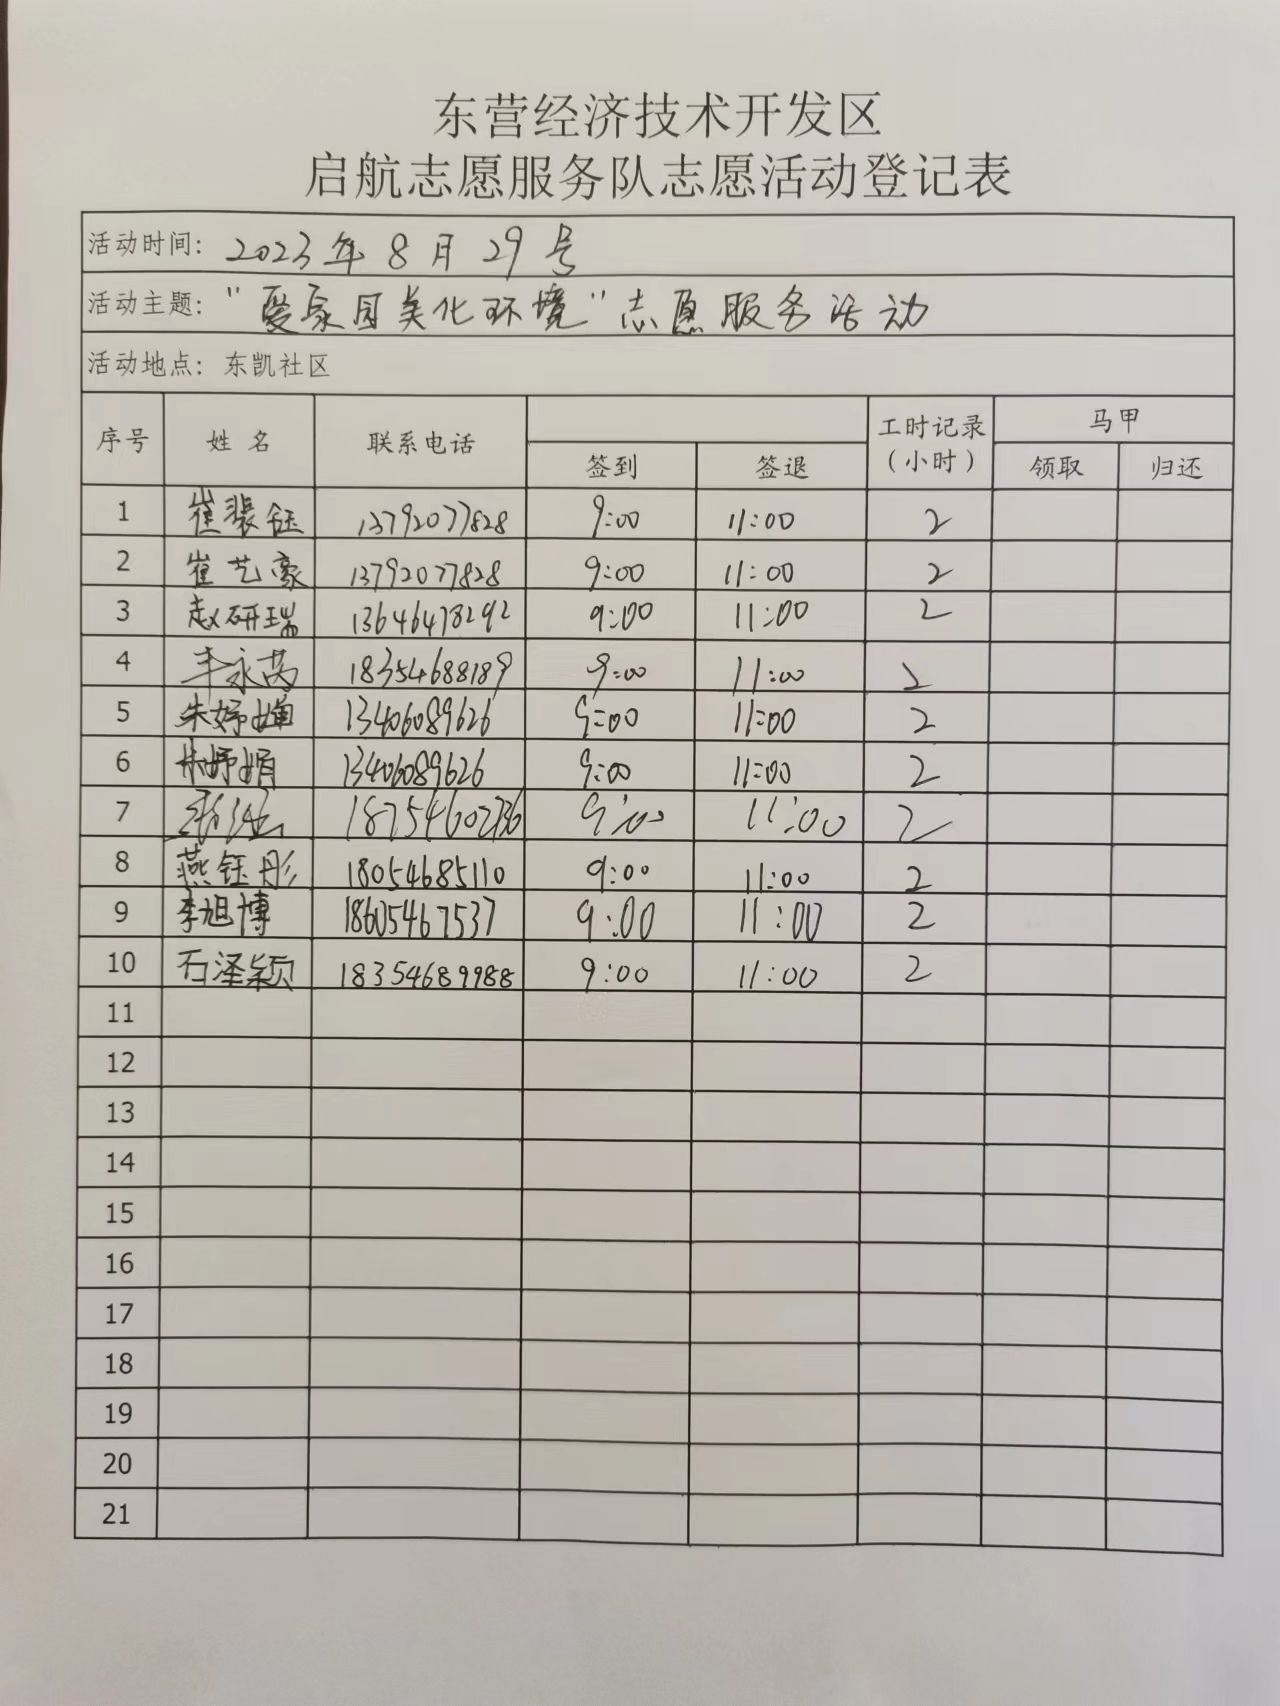 东营经济技术开发区
启航志愿服务队志愿活动登记表
活动时间: 2023年8月29号
活动主题: "爱家园美化环境"志愿服务活动
活动地点: 东凯社区
序号 姓名 联系电话 签到 签退 工时记录(小时) 马甲 领取 归还
1 崔裴钰 13792077828 9:00 11:00 2
2 崔艺豪 13792077828 9:00 11:00 2
3 赵研瑞 13646478292 9:00 11:00 2
4 丰永芮 18354688189 9:00 11:00 2
5 朱妤 13406089626 9:00 11:00 2
6 朱妤娟 13406089626 9:00 11:00 2
7 9:00 11:00 2
8 燕钰彤 18054685110 9:00 11:00 2
9 李旭博 18605467537 9:00 11:00 2
10 石泽颖 18354689988 9:00 11:00 2
11
12
13
14
15
16
17
18
19
20
21